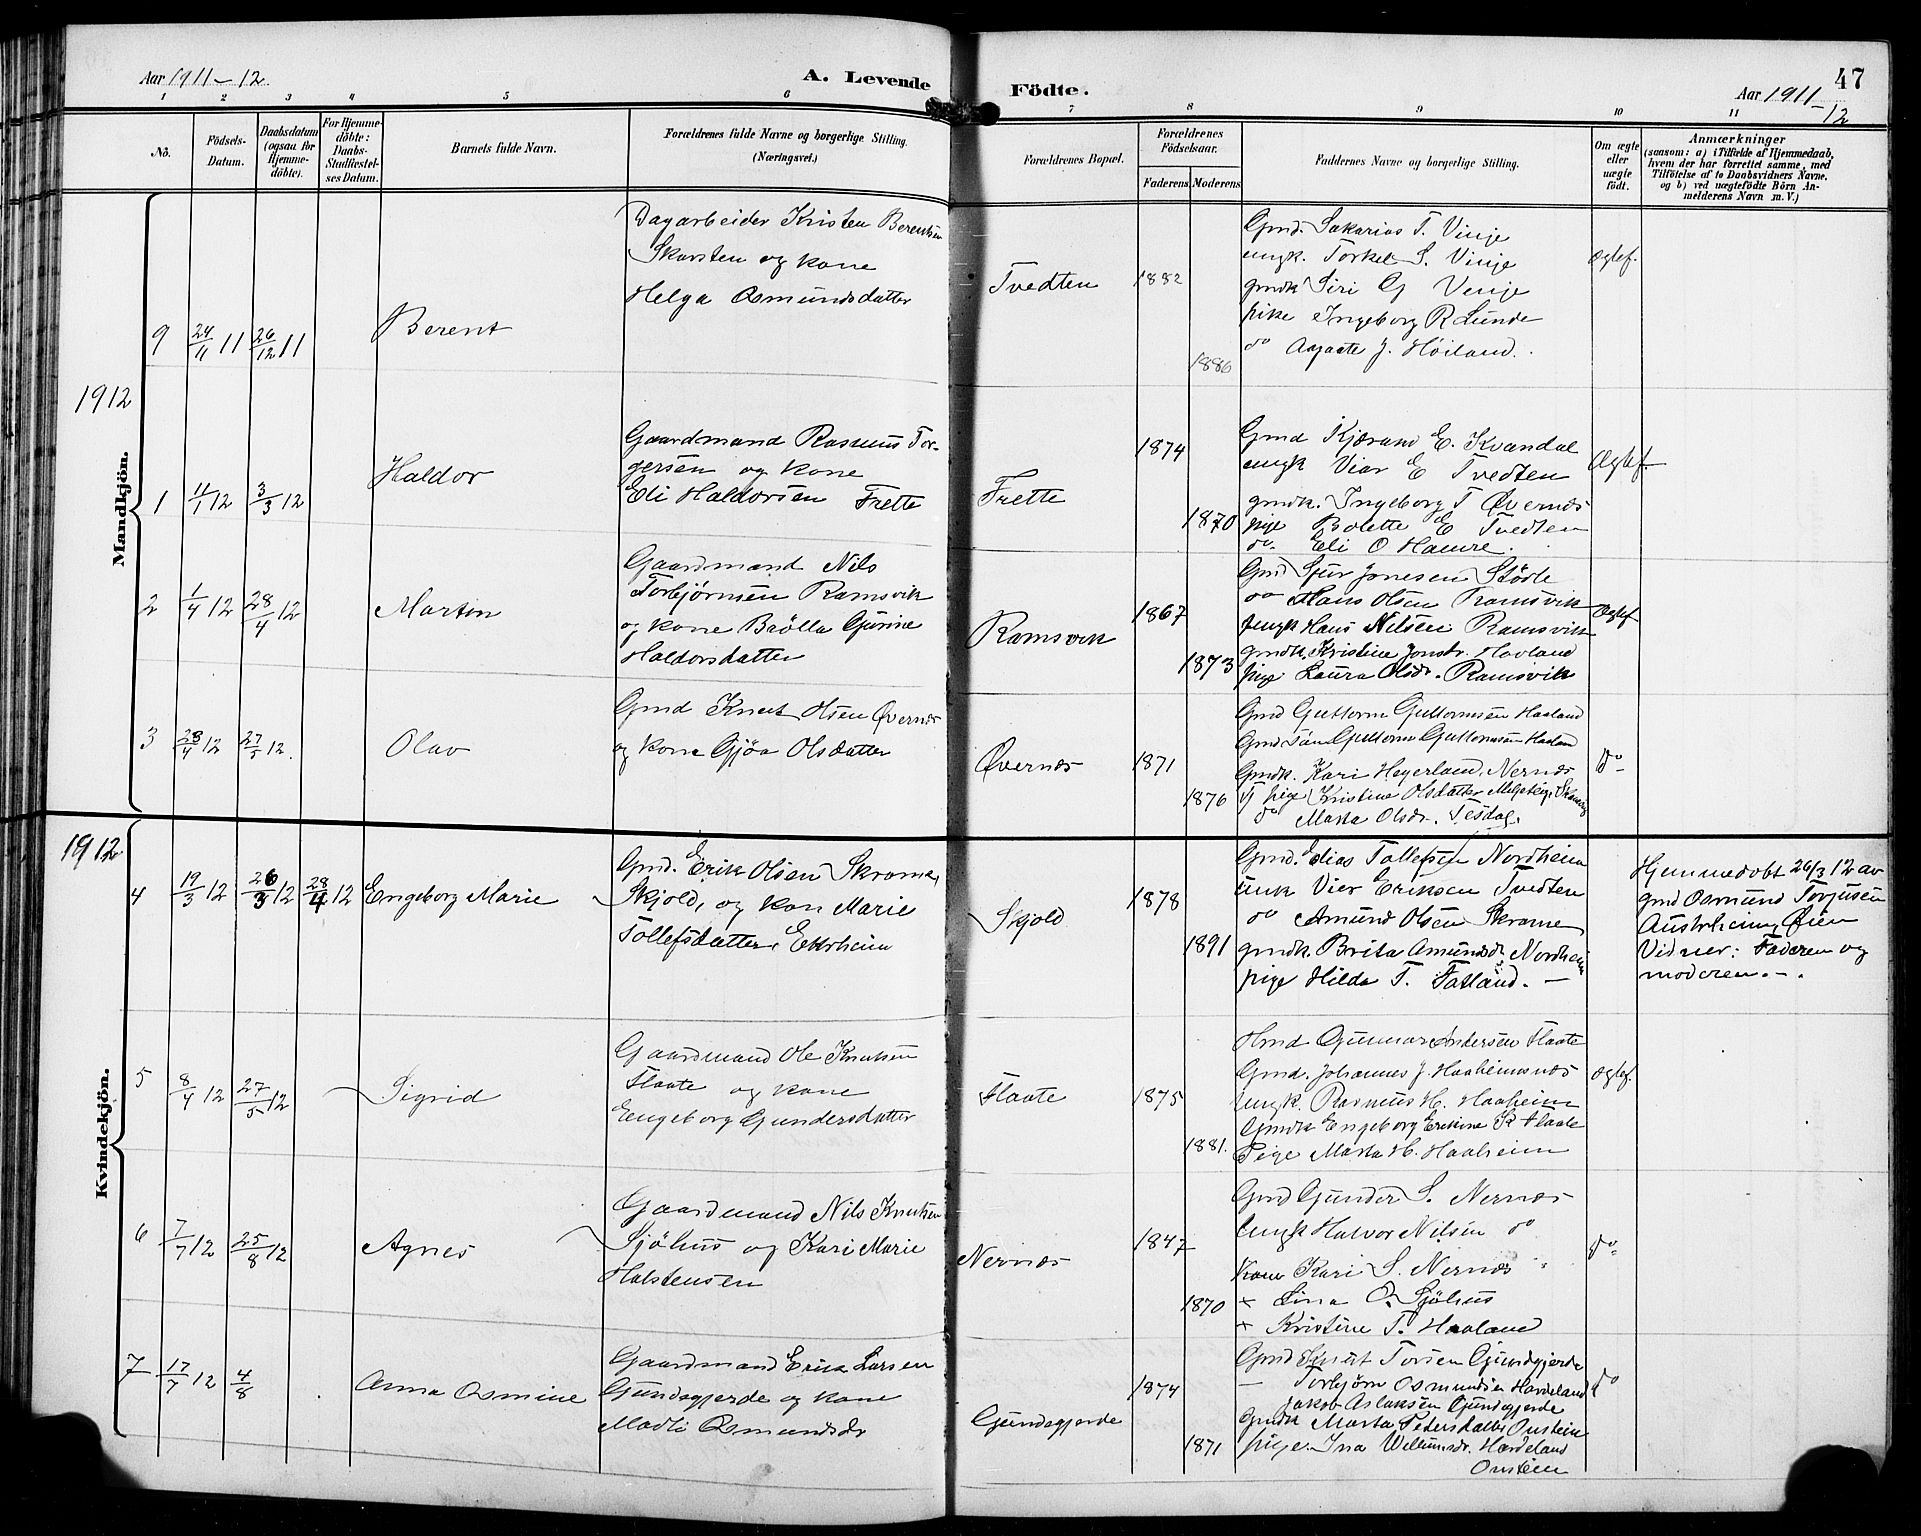 Aar 1911-12.
A. Levende
Födte.
Aar 1911-12
47
1 2 3 4 5 6 7 8 9 10 11
No.
Födsels-
Datum.
Daabsdatum
(ogsaa for
Hjemme-
döbte).
For Hjemme-
döbte:
Daabs-
Stadfæstel-
ses Datum.
Barnets fulde Navn.
Forældrenes fulde Navne og borgerlige Stilling.
(Næringsvei.)
Forældrenes Bopæl.
Forældrenes
Födselsaar.
Faderens Moderens
Faddernes Navne og borgerlige Stilling.
Om ægte
eller
uægte
födt.
Anmærkninger
(saasom: a) i Tilfælde af Hjemmedaab,
hvem der har forrettet samme, med
Tilföielse af to Daabsvidners Navne,
og b) ved uægtefödte Börn An-
melderens Navn m. V.)
Mandkjön.
9 24/11 11 26/12 11 Berent
Dagarbeider Kristen Berentsen
Skarsten og kone
Helga Osmundsdatter
Tvedten 1882 1886
Gmd. Sakarias T. Vinje
ungk. Torkel S. Vinje
gmdk Siri G Vinje
pike Ingeborg R Lunde
do Aagaate J. Høiland.
Ægtef.
1912
1 4/1 12 3/3 12 Haldor
Gaardmand Rasmus Tor-
gersen og kone
Eli Haldorsen Frette
Frette 1874 1870
Gmd Kjærand E. Kvandal
ungk Viar E Tvedten
gmdk. Ingeborg T Øvernes
pige Bolette E Tvedten
do. Eli O Hamre.
Ægtef.
2 1/4 12 28/4 12 Martin
Gaardmand Nils
Torbjørnsen Ramsvik
og kone Brølla Gurine
Haldorsdatter
Ramsvik 1867 1873
Gmd Sjur Jonesen Støle
do Hans Olsen Ramsvik
ungk Hans Nilsen Ramsvik
gmdk. Kristine Jonsdr. Havland
pige Laura Olsdr. Ramsvik
Ægtef
3 28/4 12 27/5 12. Olav
Gmd Knut Olsen Øvernes
og kone Gjøa Olsdatter
Øvernes 1871 1876
Gmd Guttorm Guttormsen Haaland
Gmd Guttorm Guttormsen Haaland
Gmdk. Kari Hegerland, Nernes
pige Kristine Olsdatter
do Marta Olsdr. Tesdal.
do
1912
Kvindekjön.
4 19/3 12 26/3 12 28/4 12 Engeborg Marie
Gmd. Erik Olsen Skrome,
Skjold, og kon Marie
Tollefsdatter, Ekrheim
Skjold 1878 1891
Gmd. Elias Tollefsen Nordheim
unk Vier Eriksen Tvedten
do Amund Olsen Skrome
gmdk. Brita Amundsdr Nordheim
pige Hilda T. Fatland. —
Hjemmedøbt 26/3 12 av
gmd Osmund Torjusen
Austrheim, Ølen
Vidner: Faderen og
moderen. -.
5 8/4 12 27/5 12 Sigrid
Gaardmand Ole Knutsen
Flaate og kone
Engeborg Gundersdatter
Flaate 1875 1881.
Hmd Gunnar Andersen Flaate
Gmd. Johannes J. Haaheimsnes
ungk. Rasmus H. Haaheim
Gmdk Engeborg Erikine K Flaate
Pige Marta H. Haaheim
Ægtef.
6 7/7 12 25/8 12 Agnes
Gaardmand Nils Knutsen
Sjøhus og Kari Marie
Halstensen
Nernes 1847 1870
Gmd Gunder S. Nernes
Ungk Halvor Nilsen do
Kone Kari S. Nernes
× Lina O. Sjøhus
× Kristine T. Haaland
do
7 17/7 12 4/8 Anna Osmine
Gaardmand Erik Larsen
Gundegjerde og kone
Madli Osmundsdr
Gundegjerde 1874 1871
Gmd Knut Torsen Gundegjerde
— Torbjørn Osmundsen Hardeland
Jakob Aslaksen Gundegjerde
Gmdk Marta Petersdatter Onstein
pige. Ina Willumsdr. Hardeland
Onstein
do